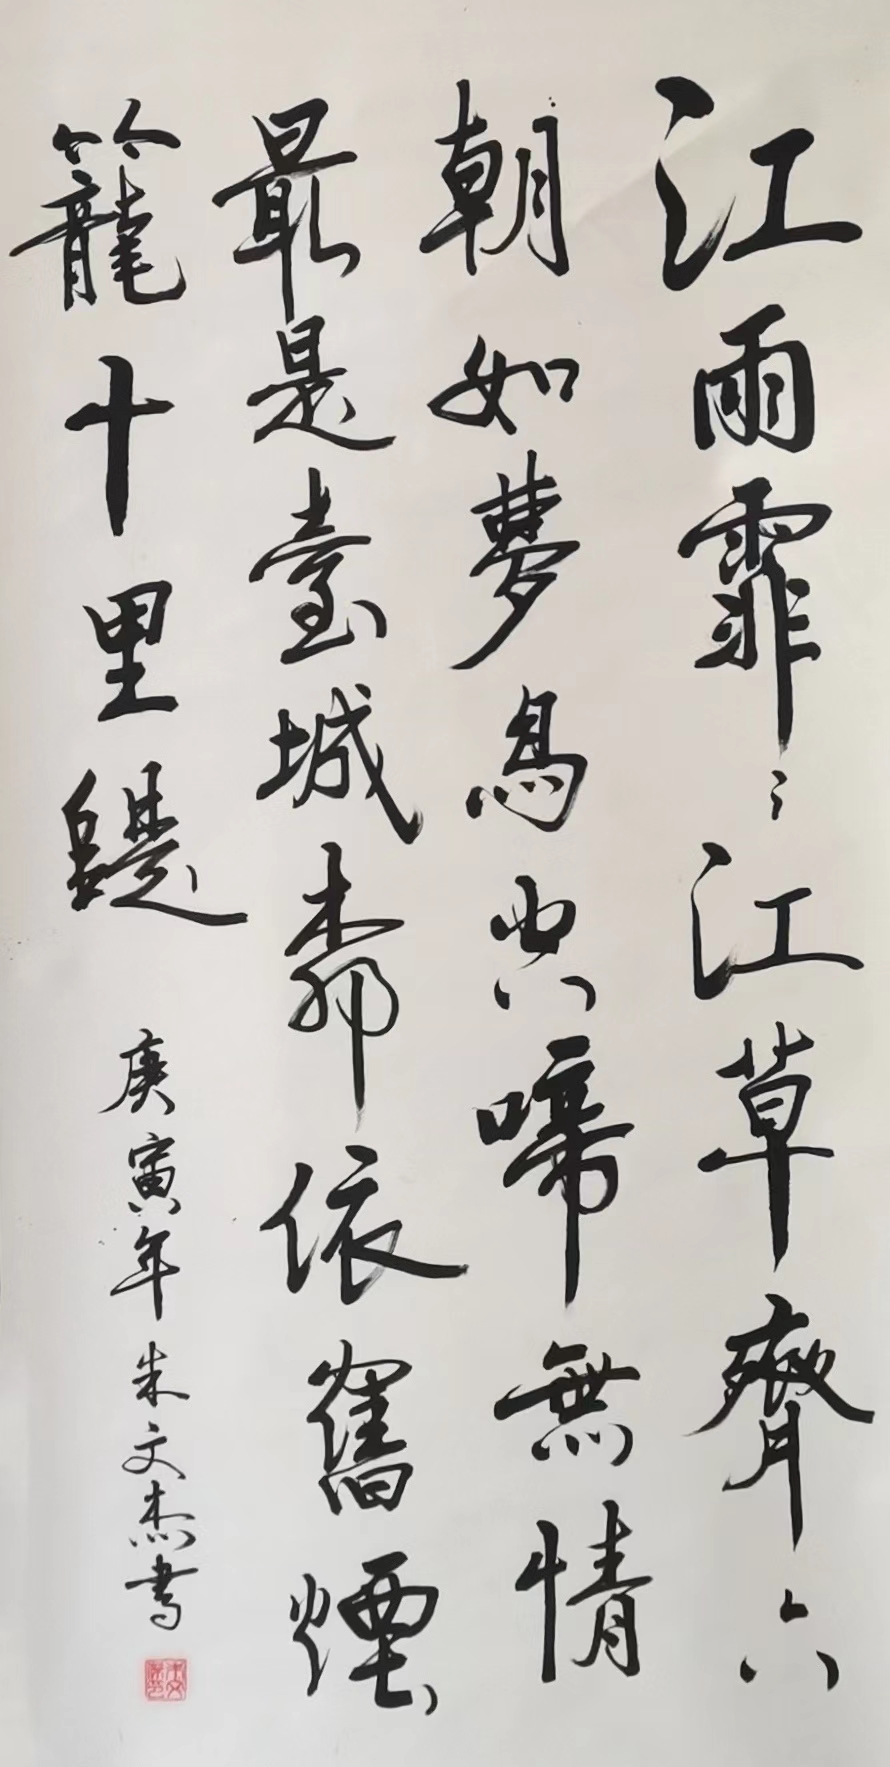 江雨霏〻江草齊六
朝如夢鳥空啼無情
最是臺城柳依舊煙
籠十里隄
庚寅年朱文杰書